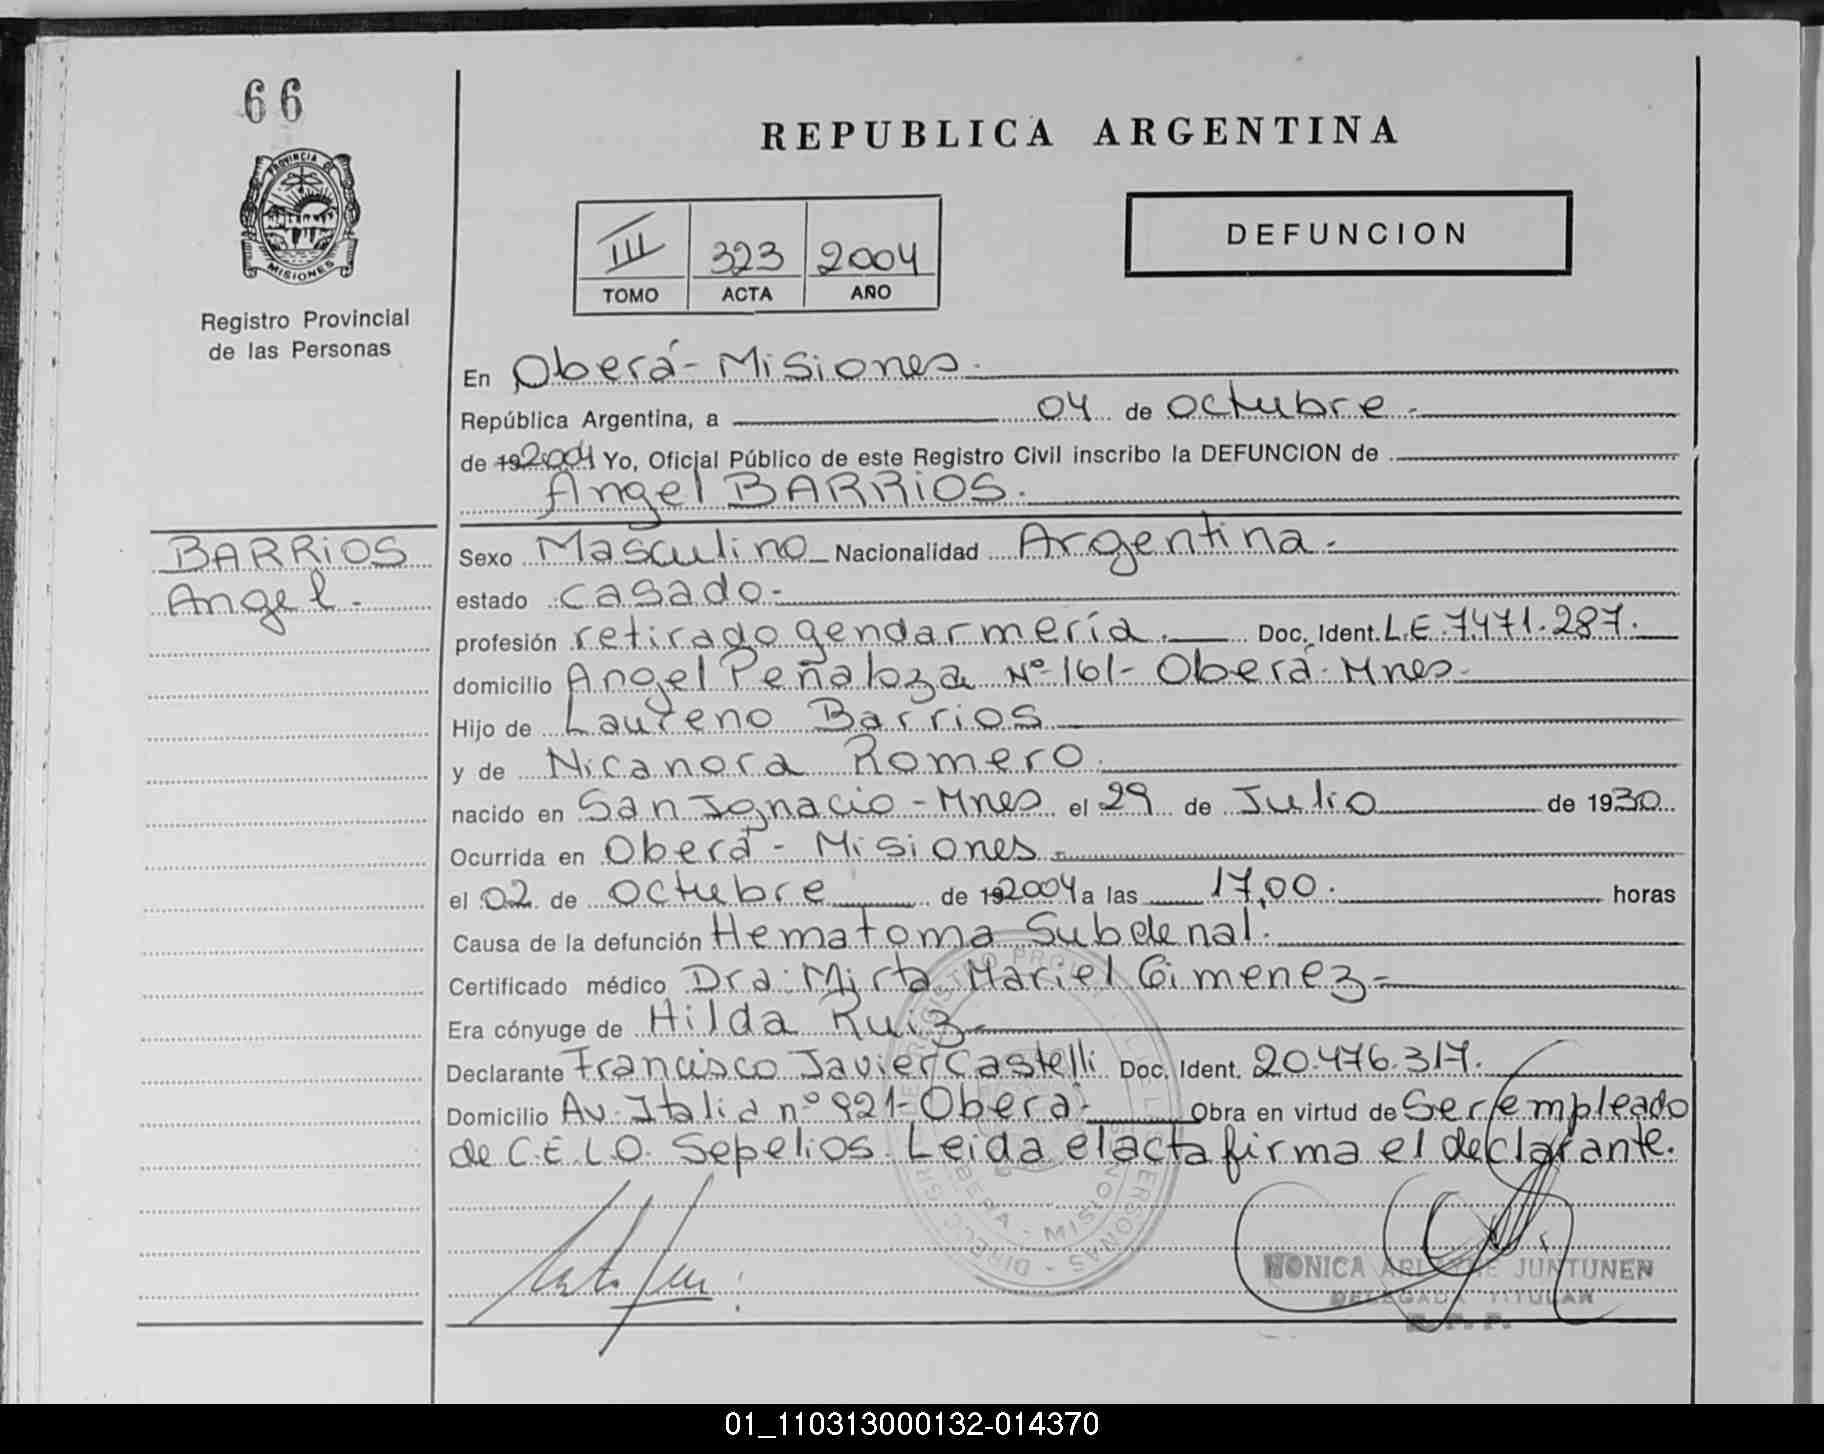 66
PROVINCIA DE
MISIONES
Registro Provincial
de las Personas
REPUBLICA ARGENTINA
III 323 2004
TOMO ACTA AÑO
DEFUNCION
En Oberá - Misiones.
República Argentina, a 04 de octubre.
de 192004 Yo, Oficial Público de este Registro Civil inscribo la DEFUNCION de
Angel BARRIOS.
BARRIOS
Angel.
Sexo Masculino Nacionalidad Argentina.
estado casado.
profesión retirado gendarmería. Doc. Ident. L.E. 7471.287.
domicilio Angel Peñaloza Nº 161 - Oberá. Mnes.
Hijo de Laureno Barrios
y de Nicanora Romero.
nacido en San Ignacio - Mnes el 29 de Julio de 1930
Ocurrida en Oberá - Misiones.
el 02 de octubre de 192004 a las 17,00. horas
Causa de la defunción Hematoma Subdenal.
Certificado médico Dra. Mirta Mariel Gimenez
Era cónyuge de Hilda Ruiz
Declarante Francisco Javier Castelli Doc. Ident. 20.476.317.
Domicilio Av. Italia nº 921 - Oberá. Obra en virtud de Ser empleado
de C.E.L.O. Sepelios. Leida el acta firma el declarante.
MONICA JUNTUNEN
DELEGADA TITULAR
R. P. P.
01_110313000132-014370